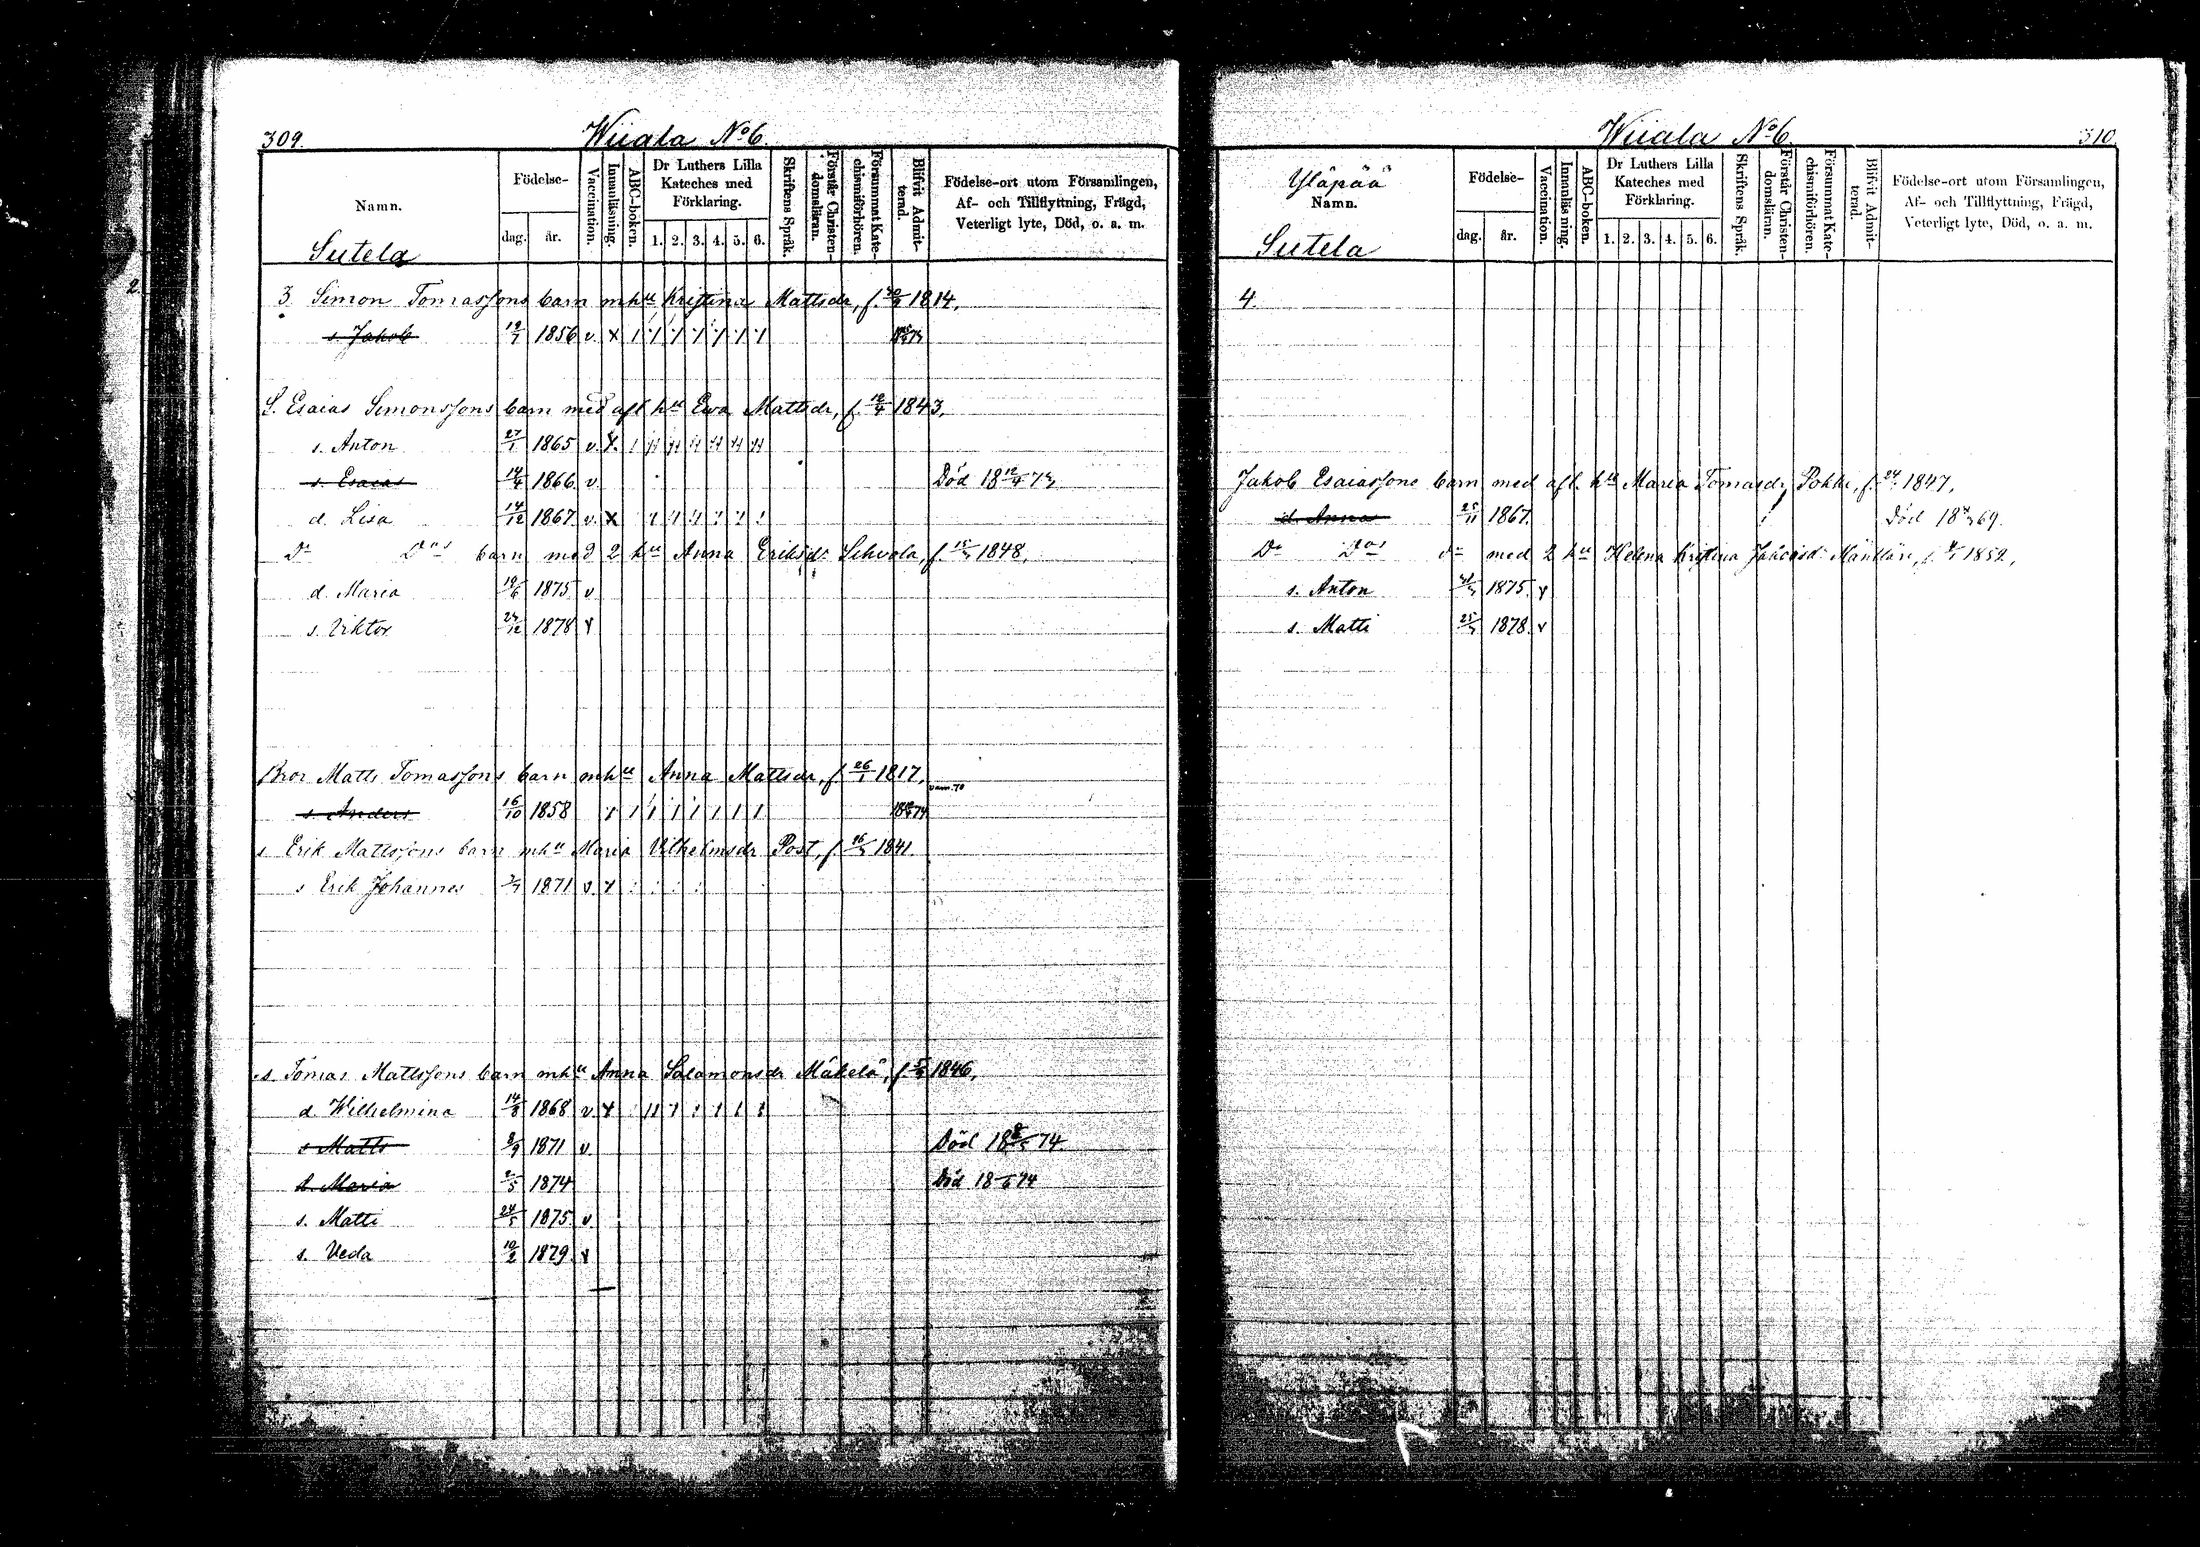 309.
Wiiala No 6.
Namn.
Sutela
Födelse-
dag.
år.
Vaccination.
Innanläsning.
ABC-boken.
Dr Luthers Lilla
Kateches med
Förklaring.
1. 2. 3. 4. 5. 6.
Skriftens Språk.
Förstår Christen-
domsläran.
Försummat Kate-
chismiförhören.
Blifvit Admit-
terad.
Födelse-ort utom Församlingen,
Af- och Tillflyttning, Frägd,
Veterligt lyte, Död, o. a. m.
3. Simon Tomassons barn mhu Kristina Mattsdr, f. 1814.
s. Jakob 1856 v. x
S. Esaias Simonssons barn med afl hu Ewa Mattsdr, f. 1843.
s. Anton 27/1 1865 v. x.
s. Esaias 14/4 1866 v. Död
d. Lisa 14/12 1867 v. x
Do Dos barn med 2 hu Anna Eriksdr f. 1848.
d. Maria 1875 v
s. Viktor 1878 v
Bror Matts Tomassons barn mhu Anna Mattsdr, f. 26/1 1817.
s. Anders 16/10 1858
s. Erik Mattssons barn mhu Maria Vilhelmsdr Post, f. 1841.
s Erik Johannes 1871 v. x
s. Tomas Mattssons barn mhu Anna Salamonsdr Mäkelä, f. 1846.
d. Wilhelmina 14/8 1868 v. x
s Matts 1871 v. Död 74.
d. Maria 1874 Död 74
s. Matti 24/5 1875 v
s. Veda 10/2 1879 v
Wiiala No 6.
310.
Yläpää
Namn.
Sutela
Födelse-
dag.
år.
Vaccination.
Innanläsning.
ABC-boken.
Dr Luthers Lilla
Kateches med
Förklaring.
1. 2. 3. 4. 5. 6.
Skriftens Språk.
Förstår Christen-
domsläran.
Försummat Kate-
chismiförhören.
Blifvit Admit-
terad.
Födelse-ort utom Församlingen,
Af- och Tillflyttning, Frägd,
Veterligt lyte, Död, o. a. m.
4.
Jakob Esaiassons barn med afl. hu Maria Tomasdr, f. 1847.
d. Anna 25/11 1867. Död 69.
Do Dos do med 2 hu Helena Kristina f. 1852.
s. Anton 1875. v
s. Matti 1878. v